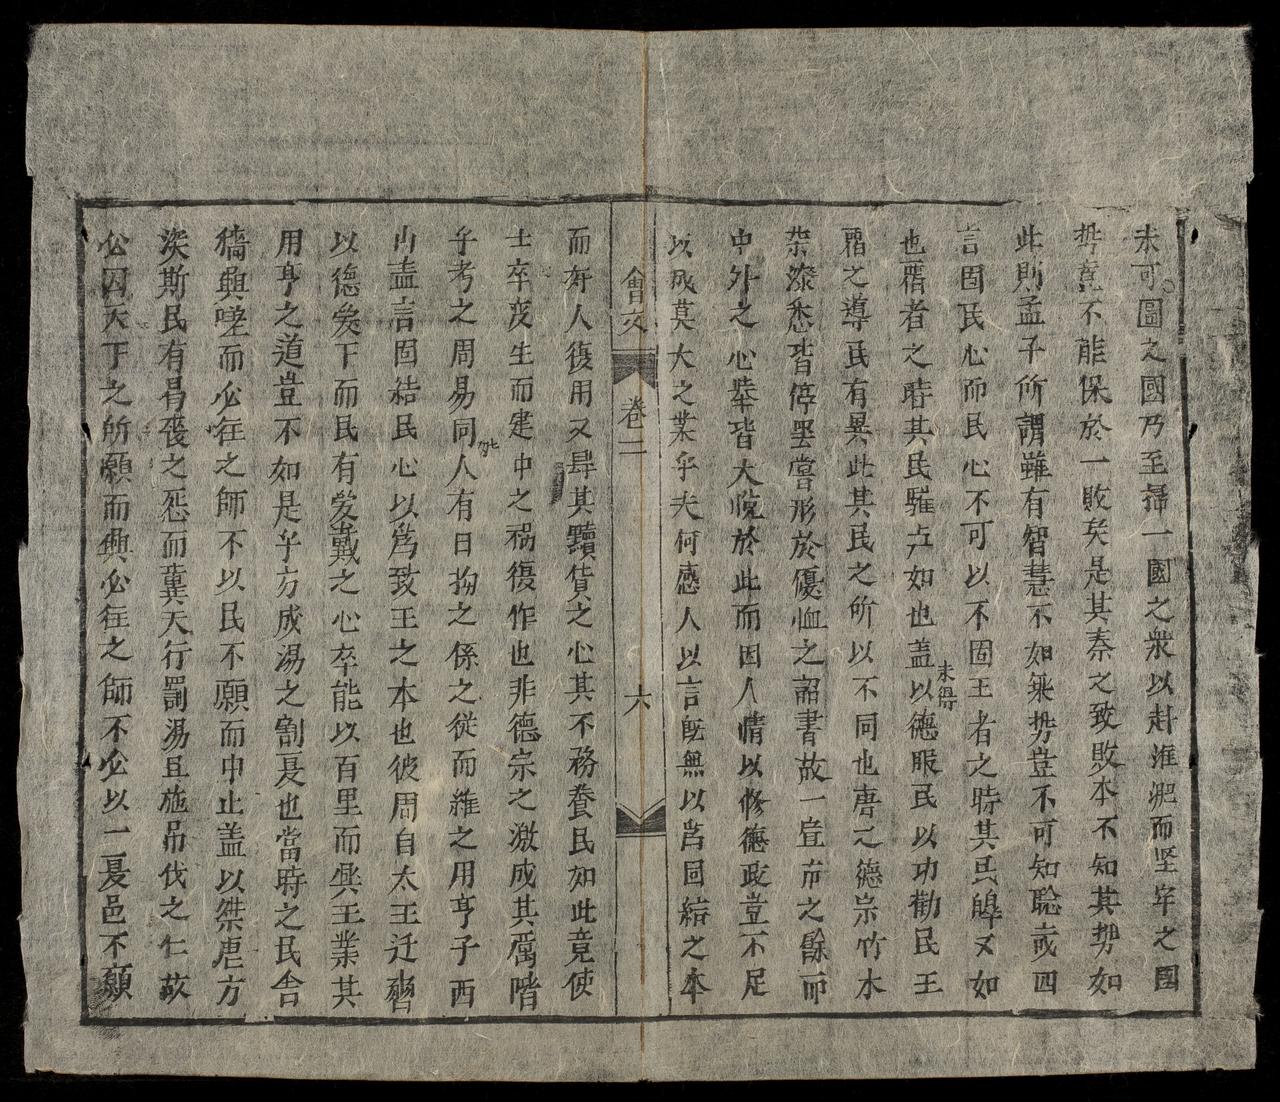 未可圖之國乃至掃一國之衆以赴淮淝而坚牢之國
勢竟不能保於一敗矣是其秦之致敗本不知其势如
此則孟子所謂雖有智慧不如乗势豈不可知聡或四
言固民心而民心不可以不固王者之時其民皥又如
也覇者之時其民驩虞如也盖以德服民以功勸民王
未得
覇之導民有異此其民之所以不同也唐之德宗竹木
茶漆悉皆停罢嘗形於優恤之詔書故一宣布之餘而
中外之心舉皆大悅於此而因人情以修德政豈不足
以成莫大之業乎夫何感人以言既無以爲固結之本
會文
卷二
六
而奸人復用又肆其黷貨之心其不務養民如此竟使
士卒变生而建中之禍復作也非德宗之激成其厲階
乎考之周易同人有曰拘之係之從而維之用亨子西
山盖言固結民心以爲致王之本也彼周自太王迁
以德爰下而民有爱戴之心卒能以百里而興王業其
用亨之道豈不如是乎方成湯之割夏也當時之民舍
穡興嗟而必往之師不以民不願而中止盖以桀虐方
深斯民有曷喪之怨而奠天行罰湯且施吊伐之仁故
必因天下之所願而興必往之師不必以一夏邑不願